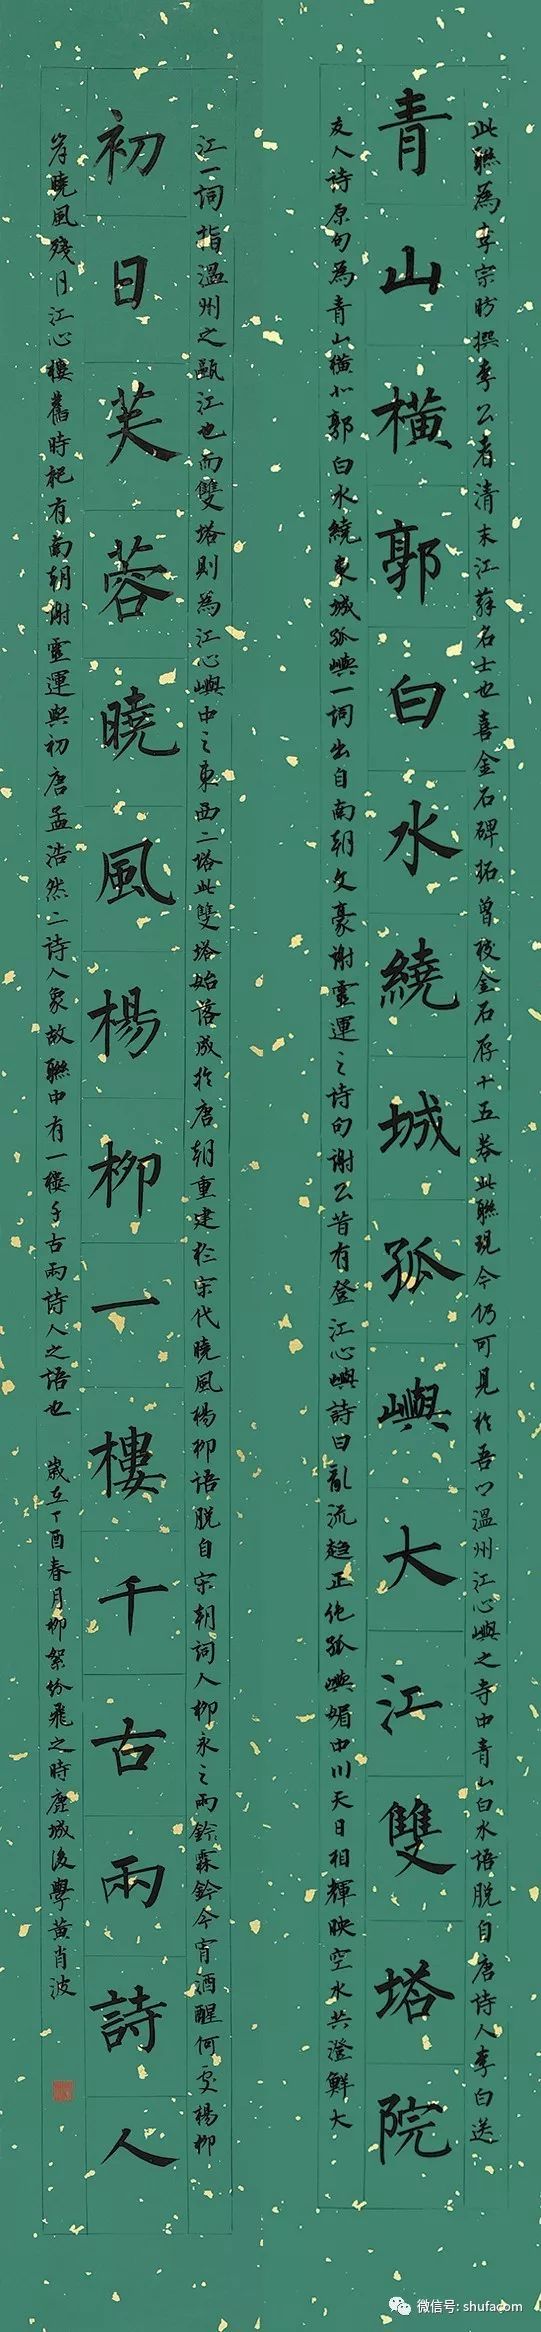 此聯為李宗昉撰李公者清末江蘇名士也喜金石碑拓曾校金石存十五卷此聯現今仍可見於吾溫州江心嶼之寺中青山白水語脫自唐詩人李白送
青山橫郭白水繞城孤嶼大江雙塔院
友人詩原句為青山橫北郭白水繞東城孤嶼一詞出自南朝文豪謝靈運之詩句謝公昔有登江心嶼詩曰亂流趨正絕孤嶼媚中川天日相輝映空水共澄鮮大
江一詞指溫州之甌江也而雙塔則為江心嶼中之東西二塔此雙塔始落成於唐朝重建於宋代曉風楊柳語脫自宋朝詞人柳永之雨鈴霖鈴今宵酒醒何處楊柳
初日芙蓉曉風楊柳一樓千古兩詩人
岸曉風殘月江心樓舊時祀有南朝謝靈運與初唐孟浩然二詩人象故聯中有一樓千古兩詩人之語也 歲在丁酉春月柳絮紛飛之時鹿城後學黃肖波
微信号: shufacom